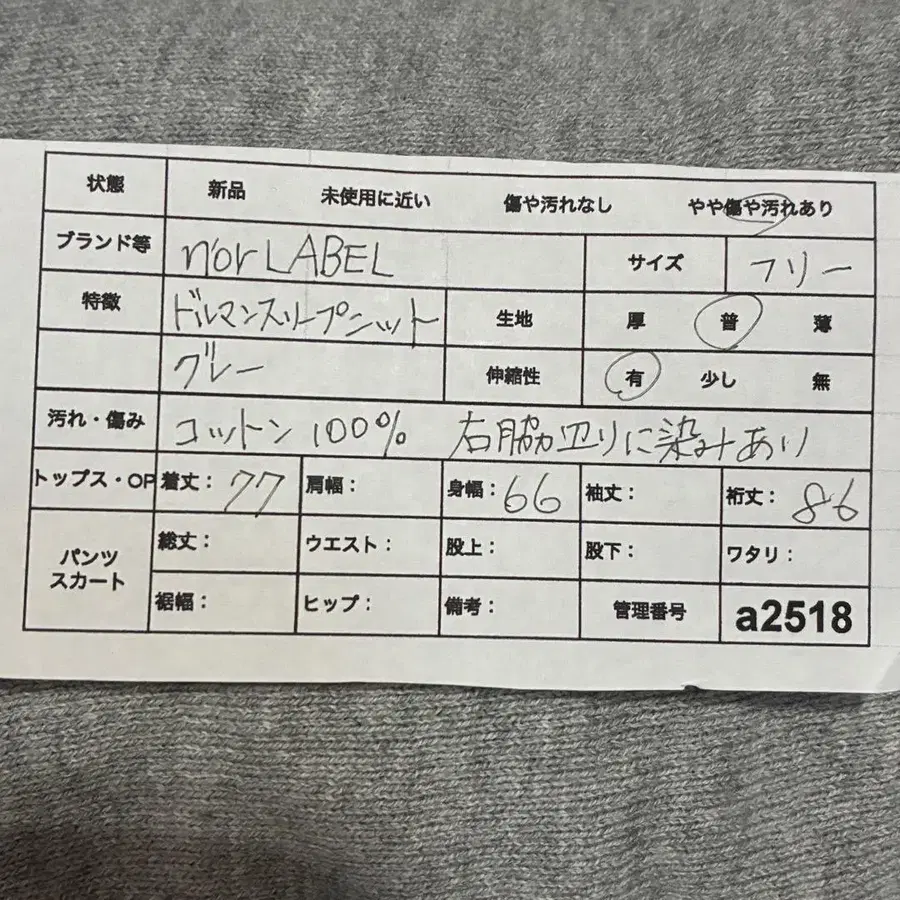 状態 新品 未使用に近い 傷や汚れなし やや傷や汚れあり
ブランド等 n'or LABEL サイズ フリー
特徴 ドルマンスリーブニット 生地 厚 普 薄
グレー 伸縮性 有 少し 無
汚れ・傷み コットン 100% 右脇辺りに染みあり
トップス・OP 着丈: 77 肩幅: 身幅: 66 袖丈: 裄丈: 86
パンツ スカート 総丈: ウエスト: 股上: 股下: ワタリ:
裾幅: ヒップ: 備考: 管理番号 a2518